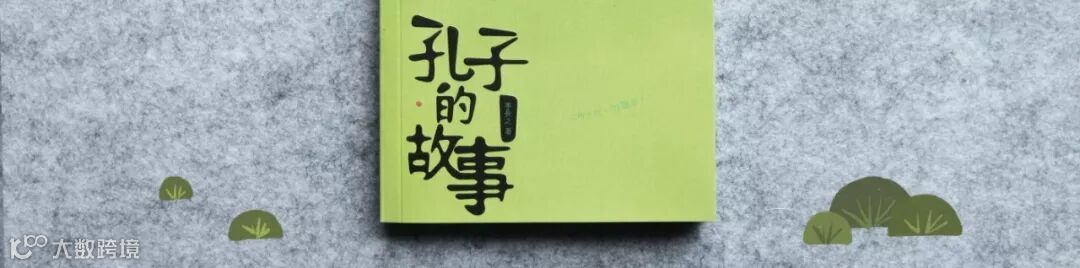 孔子
的
故事
李长之 著
大数跨境